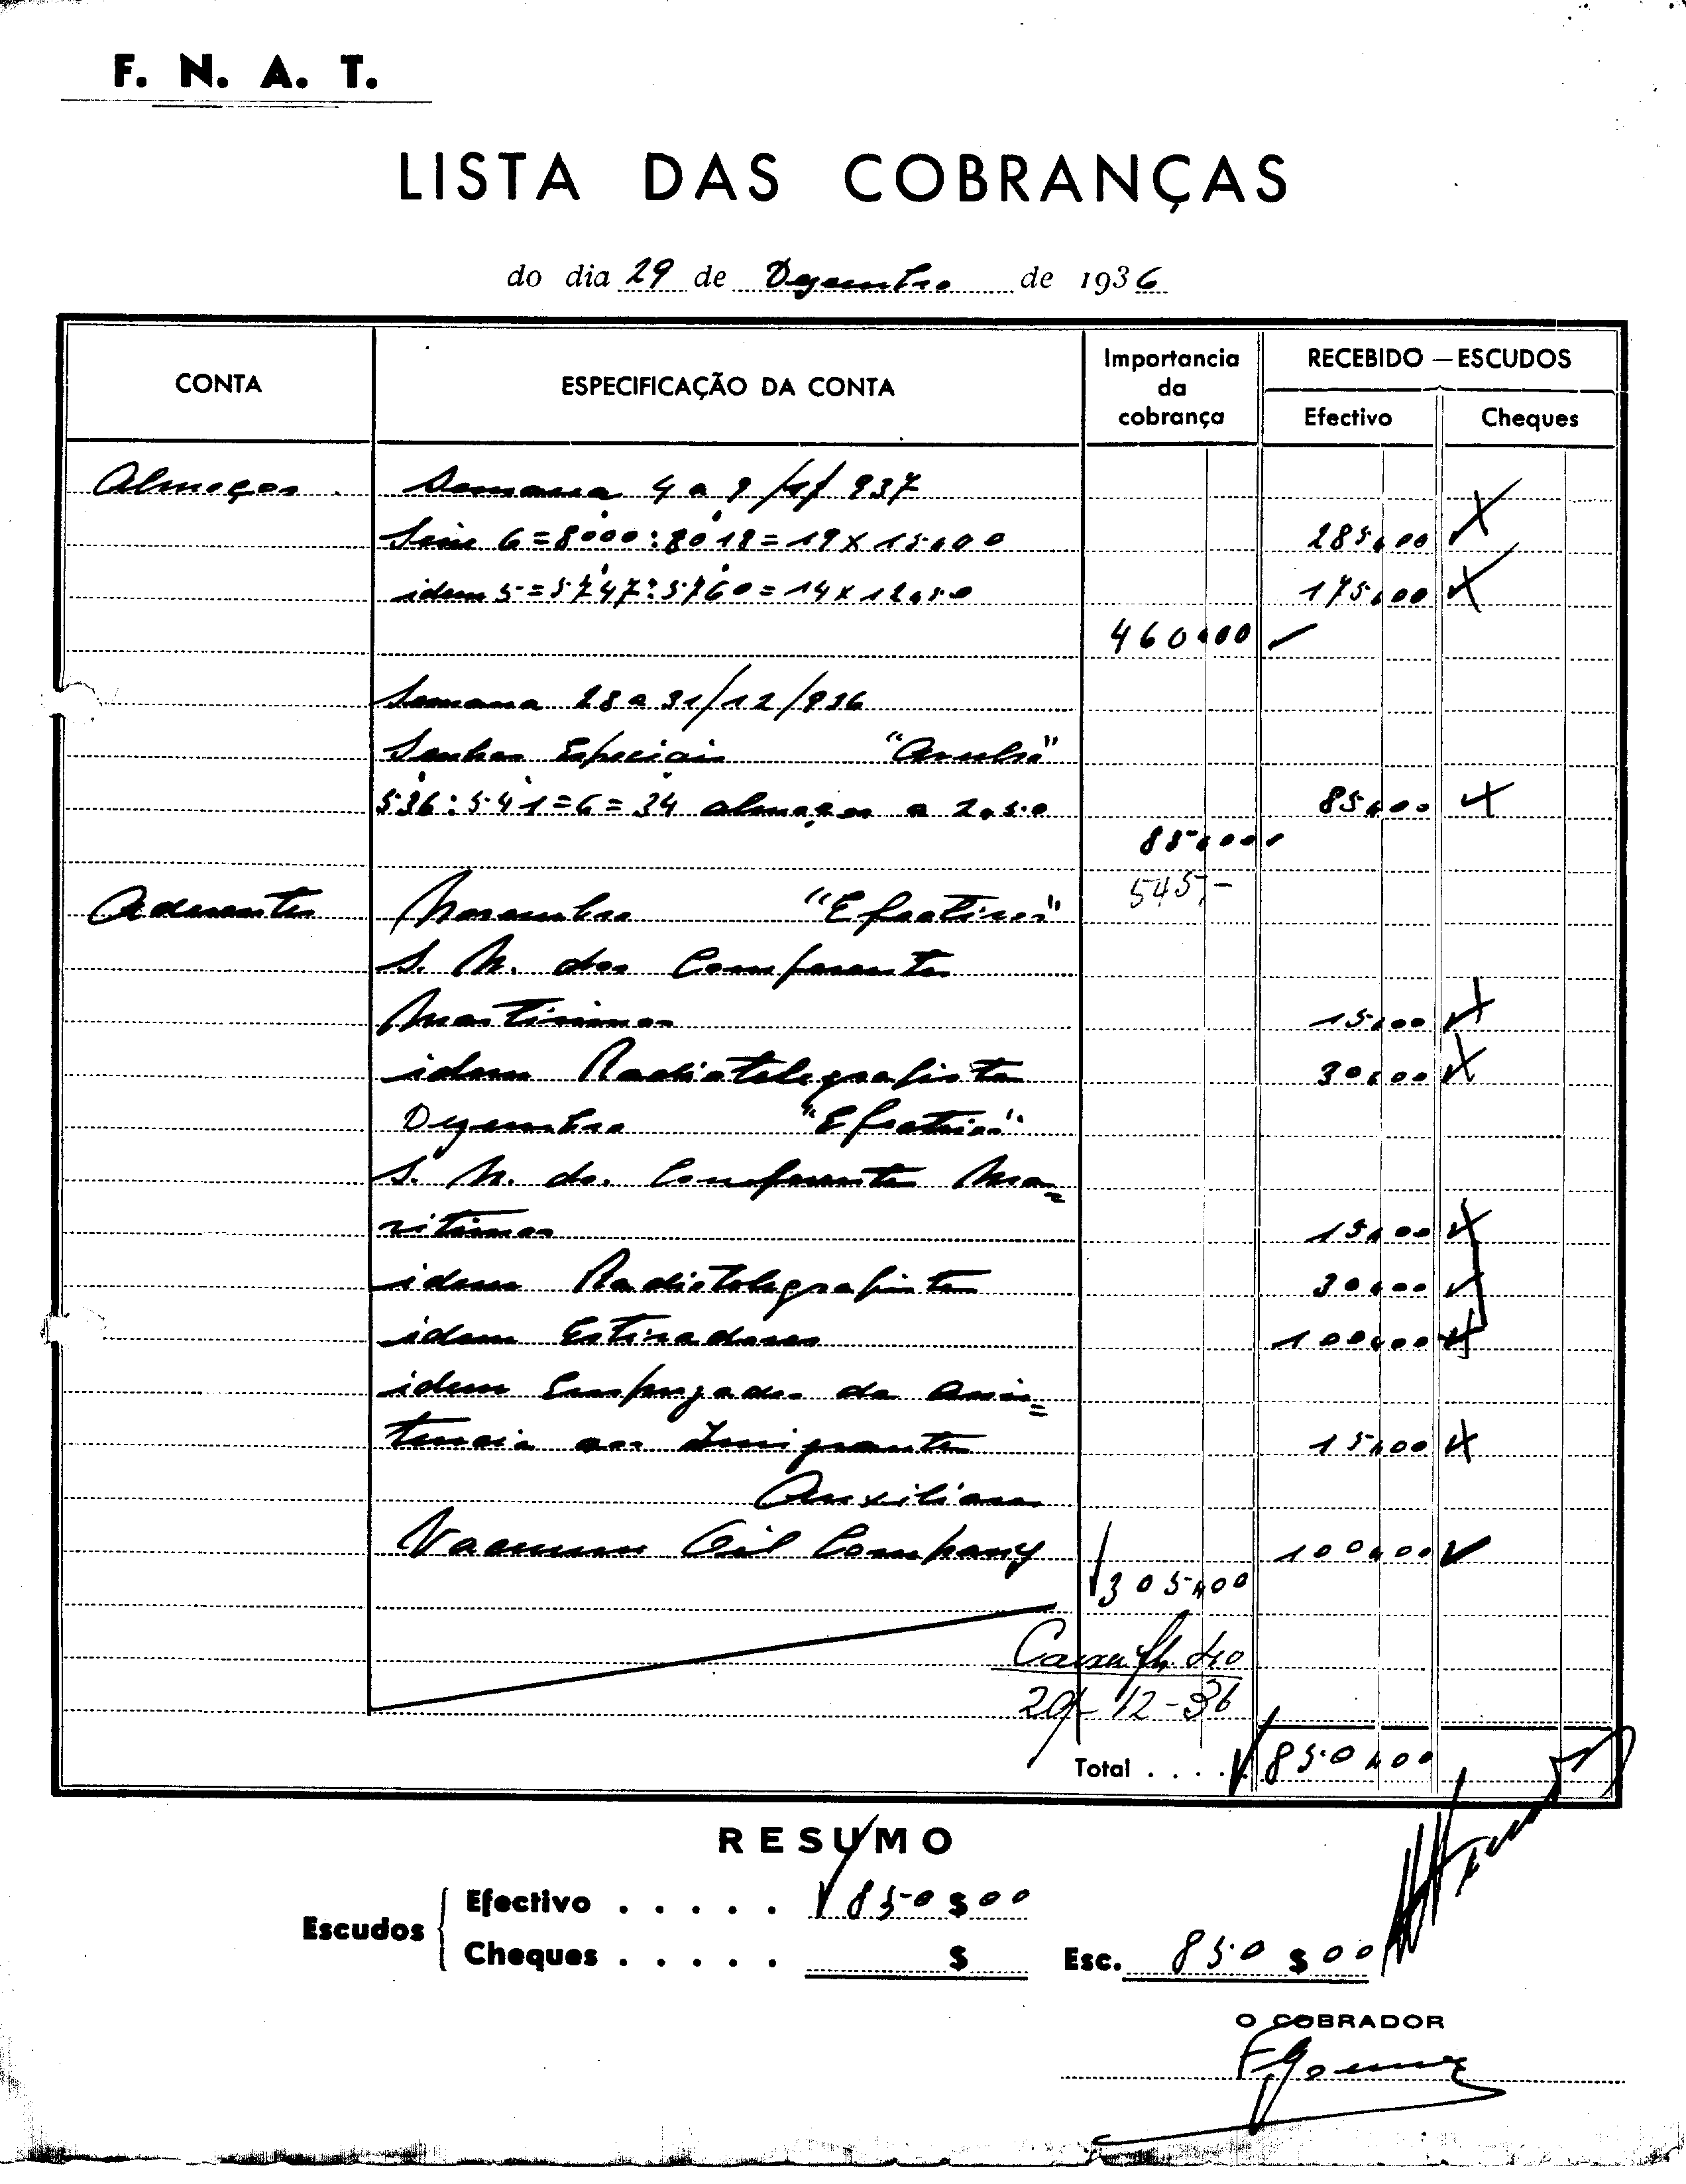 F. N. A. T.
LISTA DAS COBRANÇAS
do dia 29 de Dezembro de 1936
CONTA
ESPECIFICAÇÃO DA CONTA
Importancia da cobrança
RECEBIDO — ESCUDOS
Efectivo
Cheques
Almoços. Semana 4 a 9/1/937
Série 6=8000:8018=19x15,00 285,00
idem 5=5747:5760=14x12,50 175,00
460,00
Semana 28 a 31/12/936
Senhas Especiais "Avulso"
536:541=6=34 almoços a 2,50 85,00
85,00
545,-
Aderentes Novembro "Efectivos"
S. N. dos Comissarios
Maritimos 15,00
idem Radiotelegrafistas 30,00
Dezembro "Efectivos"
S. N. dos Ma=
ritimos 15,00
idem Radiotelegrafistas 30,00
idem Estivadores 100,00
idem Empregados da Assis=
tencia aos Imigrantes 15,00
Auxiliares
Vacuum Oil Company 100,00
305,00
Caixa fl. 40
29-12-36
Total . . . . 850,00
RESUMO
Escudos
Efectivo . . . . . 850$00
Cheques . . . . . $
Esc. 850$00
O COBRADOR
FGomes